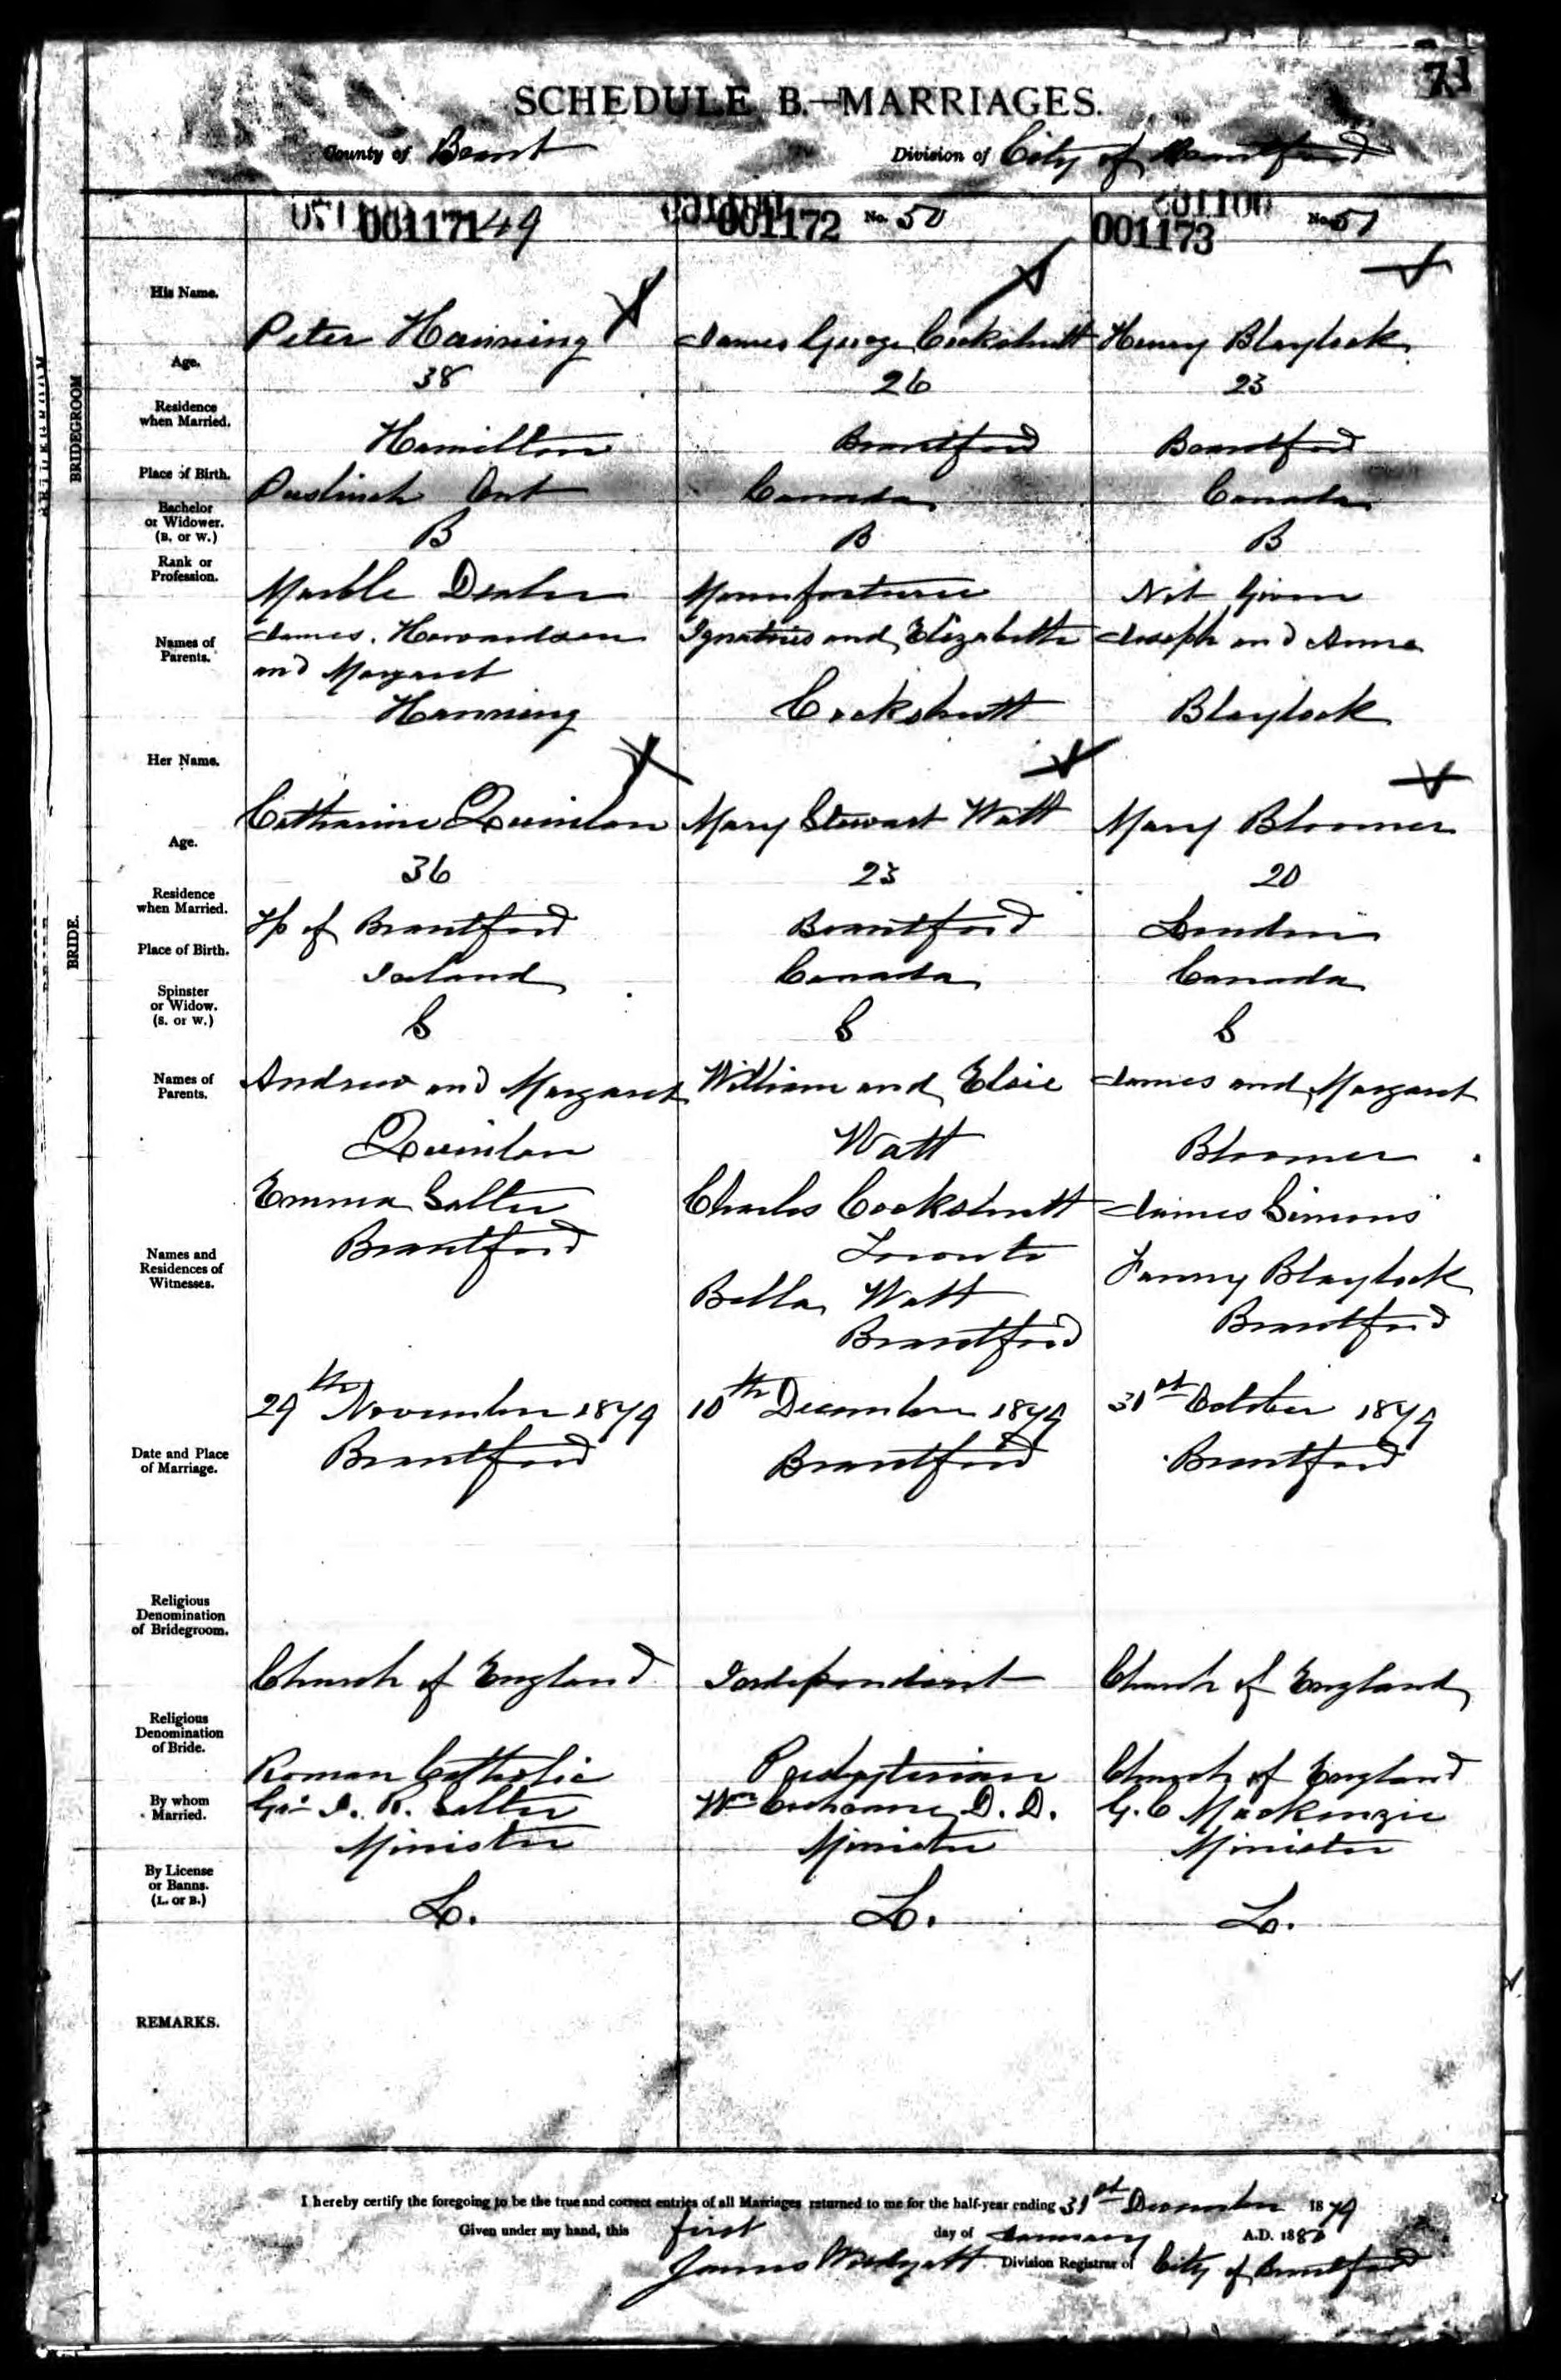 71
SCHEDULE B.—MARRIAGES.
County of Brant Division of City of Brantford
001171 49 001172 No. 50 001173 No. 51
His Name.
Peter Hanning James George Cockshutt Henry Blaylock
Age.
38 26 23
Residence
when Married.
Hamilton Brantford Brantford
Place of Birth.
Puslinch Ont Canada Canada
Bachelor
or Widower.
(B. or W.)
B B B
Rank or
Profession.
Marble Dealer Manufacturer Not Given
Names of
Parents.
James Ignatius and Elizabeth Joseph and Anne
and Margaret
Hanning Cockshutt Blaylock
BRIDEGROOM
Her Name.
Catharine Quinlan Mary Stewart Watt Mary Bloomer
Age.
36 23 20
Residence
when Married.
Tp of Brantford Brantford London
Place of Birth.
Ireland Canada Canada
Spinster
or Widow.
(S. or W.)
S S S
Names of
Parents.
Andrew and Margaret William and Elsie James and Margaret
Quinlan Watt Bloomer
BRIDE.
Names and
Residences of
Witnesses.
Emma Salter Charles Cockshutt James Simons
Brantford Toronto Fanny Blaylock
Bella Watt Brantford
Brantford
Date and Place
of Marriage.
29th November 1879 10th December 1879 31st October 1879
Brantford Brantford Brantford
Religious
Denomination
of Bridegroom.
Church of England Independent Church of England
Religious
Denomination
of Bride.
Roman Catholic Presbyterian Church of England
By whom
Married.
J. R. Salter Wm Cochrane D. D. G. C Mackenzie
Minister Minister Minister
By License
or Banns.
(L. or B.)
L. L. L.
REMARKS.
I hereby certify the foregoing to be the true and correct entries of all Marriages returned to me for the half-year ending 31st December 1879
Given under my hand, this first day of January A.D. 1880
James Woodyatt Division Registrar of City of Brantford